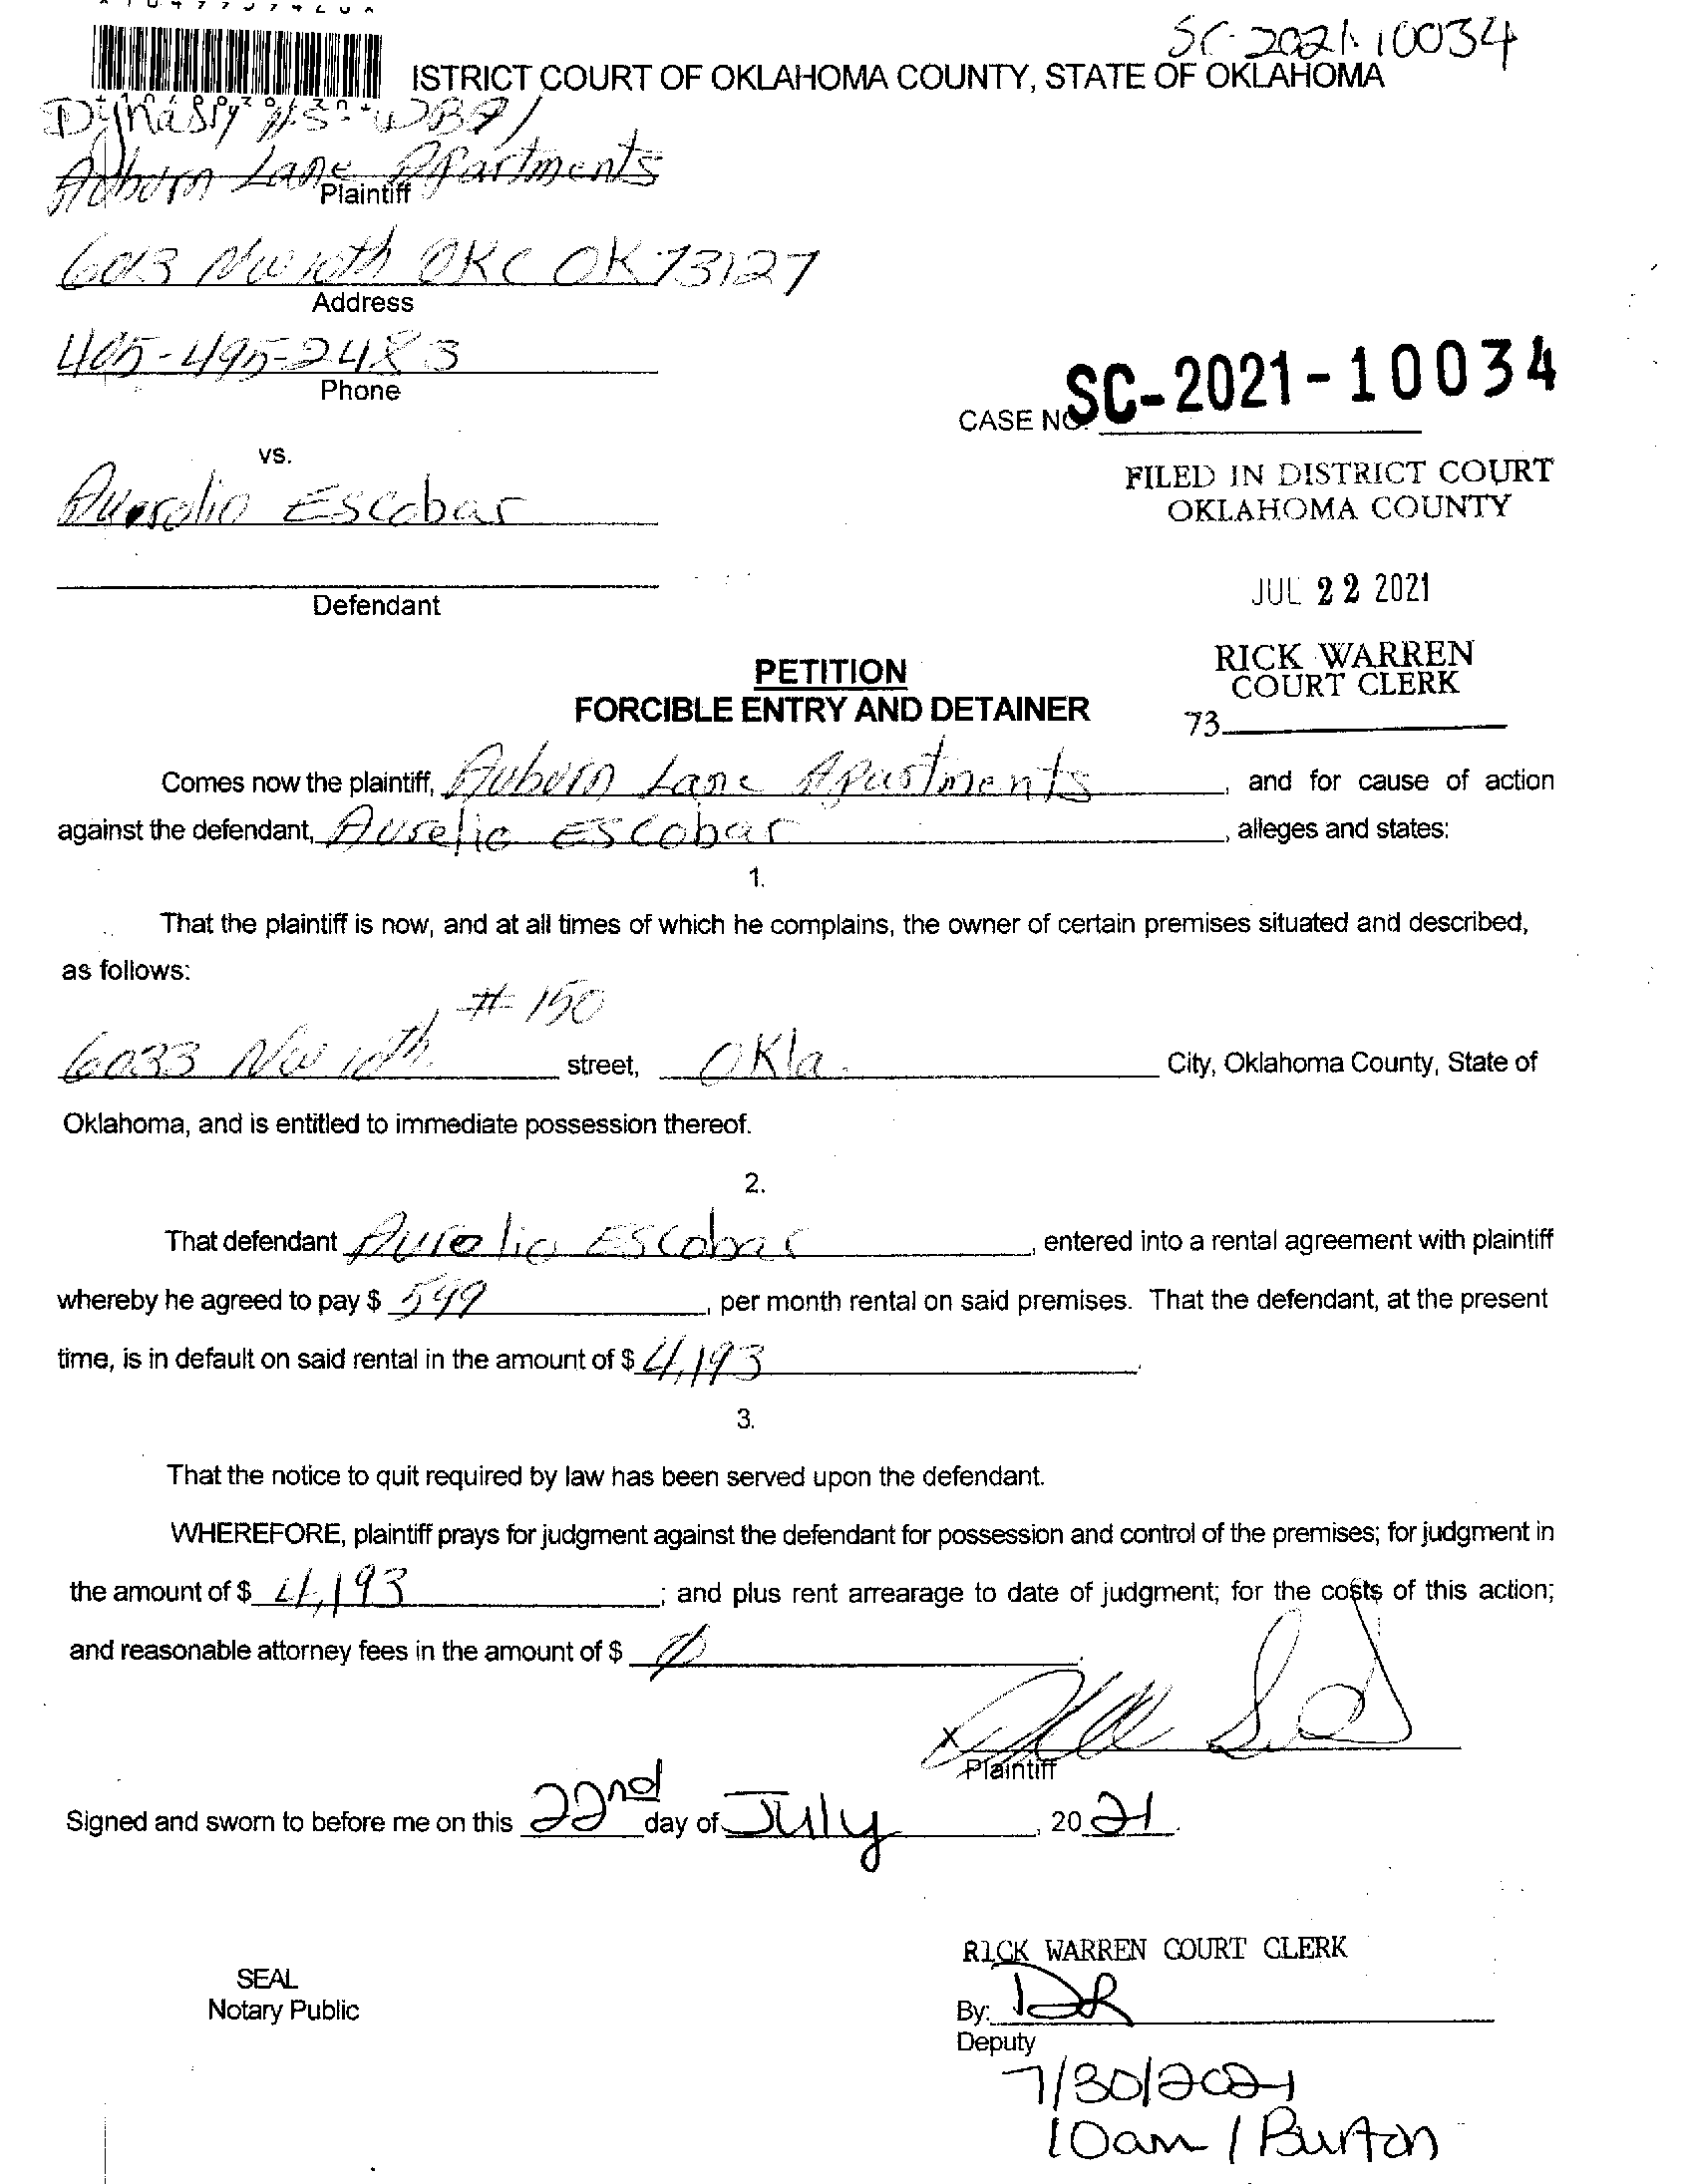 SC-2021-10034
ISTRICT COURT OF OKLAHOMA COUNTY, STATE OF OKLAHOMA
Dynasty
Auburn Lane Apartments
Plaintiff
6013 NW 10th OKC OK 73127
Address
405-495-2483
Phone
CASE NO. SC-2021-10034
vs.
Escobar
FILED IN DISTRICT COURT
OKLAHOMA COUNTY
Defendant
JUL 22 2021
PETITION
FORCIBLE ENTRY AND DETAINER
RICK WARREN
COURT CLERK
73
Comes now the plaintiff, Auburn Lane Apartments, and for cause of action
against the defendant, Aurelio Escobar, alleges and states:
1.
That the plaintiff is now, and at all times of which he complains, the owner of certain premises situated and described,
as follows:
# 150
6033 NW 10th street, Okla. City, Oklahoma County, State of
Oklahoma, and is entitled to immediate possession thereof.
2.
That defendant Aurelio Escobar, entered into a rental agreement with plaintiff
whereby he agreed to pay $ 599, per month rental on said premises. That the defendant, at the present
time, is in default on said rental in the amount of $ 4,193.
3.
That the notice to quit required by law has been served upon the defendant.
WHEREFORE, plaintiff prays for judgment against the defendant for possession and control of the premises; for judgment in
the amount of $ 4,193; and plus rent arrearage to date of judgment; for the costs of this action;
and reasonable attorney fees in the amount of $ Ø.
X
Plaintiff
Signed and sworn to before me on this 22nd day of July, 2021.
RICK WARREN COURT CLERK
SEAL
Notary Public
By: DR
Deputy
7/30/2021
10am / Burton